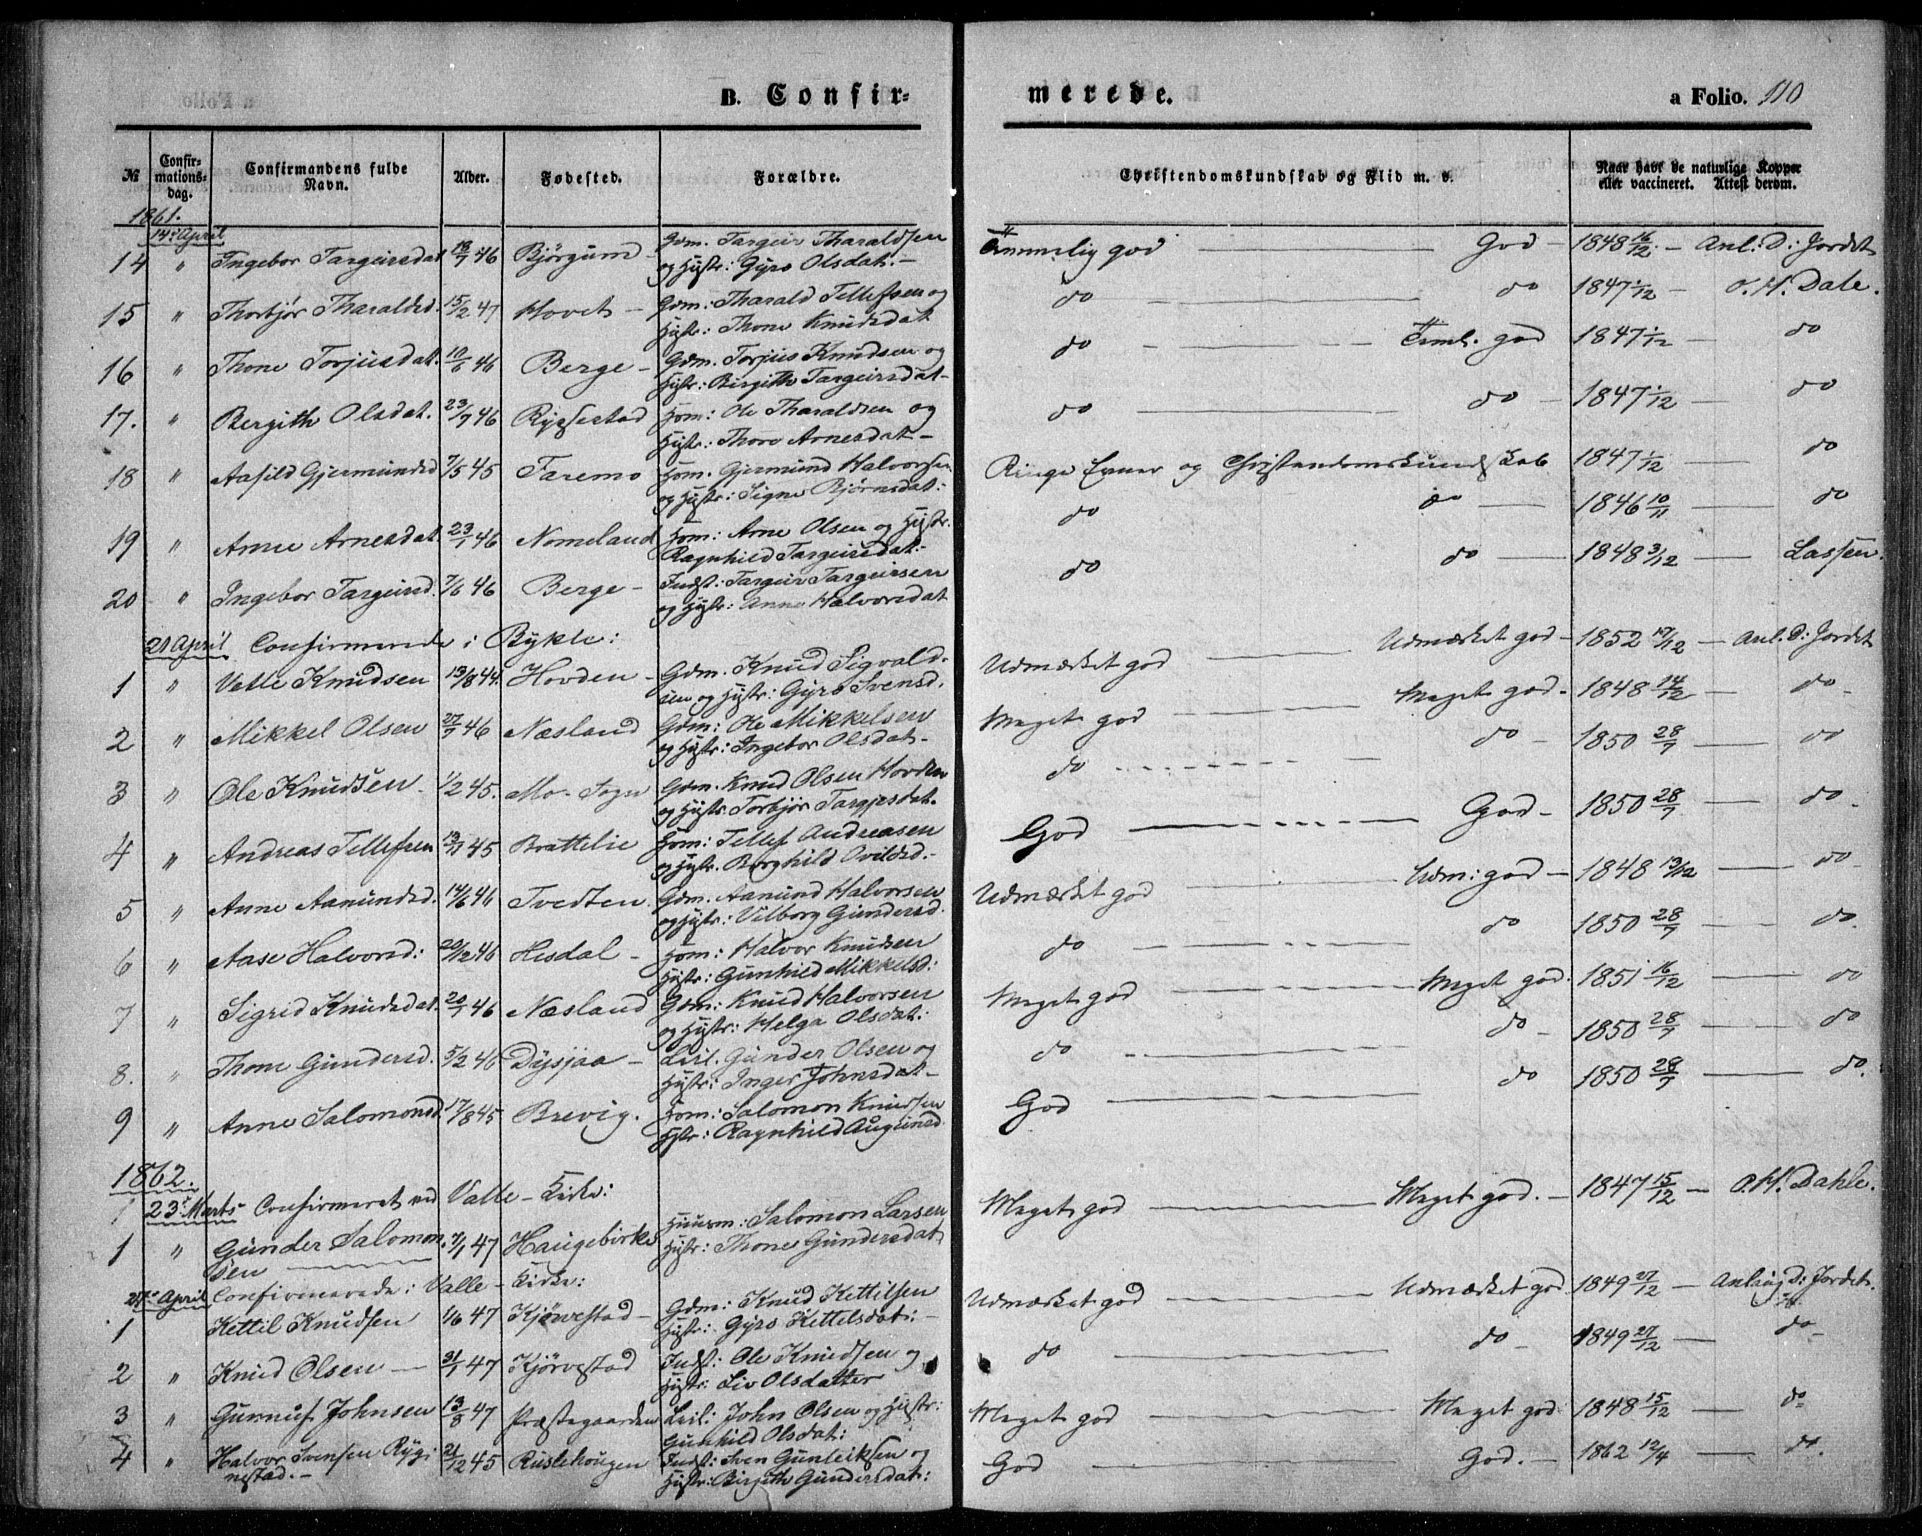 B. Confir-
merede.
a Folio. 110
№
Confir-mations-dag.
Confirmandens fulde Navn.
Alder.
Fødested.
Forældre.
Christendomskundskab og Flid m. v.
Naar havt de naturlige Kopper eller vaccineret. Attest derom.
1861.
14de April
14 " Ingebor Targeirsdat 13/7 46 Bjørgum - Gdm. Targeir Tharaldsen og Hustr: Gyro Olsdat. - Temmelig god God - 1848 16/12 - Anl. D: Jordet
15 " Thorbjør Tharaldsd. 15/2 47 Hovet - Gdm: Tharald Tellefsen og Hustr: Thone Knudsdat do do 1847 1/12 - O. H. Dale.
16 " Thone Torjusdat. 10/6 46 Berge - Gdm: Torjus Knudsen og Hustr: Birgith Targeirsdat - do Teml. god 1847 1/12 - do
17. " Bergith Olsdat. 23/9 46 Rygsestad Hom: Ole Tharaldsen og Hustr: Thore Arnesdat - do do - 1847 1/12 - do
18 " Aasild Gjermundsd 7/5 45 Faremo Hom. Gjermund Halvorsen og Hustr: Signe Bjørnsdat: Ringe Evner og Christendomskundskab 1847 1/12 - do
19 " Anne Arnesdat 23/1 46 Nomeland Hom: Arne Olsen og Hustr. Ragnhild Targeirsdat - do do 1846 10/11 - do
20 " Ingebor Targeirsd. 7/6 46 Berge - Indst: Targeir Targeirsen og Hustr: Anne Halvorsdat do do 1848 3/12 - Lassen.
21 April Confirmerede i Bykle:
1 " Valle Knudsen 13/8 44. Hovden - Gdm. Knud Sigvaldsen og Hustr: Gyro Svensd. Udmærket god Udmærket god - 1852 17/12 - Anl. D: Jordet
2 " Mikkel Olsen 27/7 46 Næsland Gdm: Ole Mikkelsen og Hustr: Ingebor Olsdat - Meget god Meget god - 1848 14/12 - do -
3 " Ole Knudsen - 1/2 45. Mo - Sogn Gdm. Knud Olsen Hovden og Hustr Torbjør Targjesdat. do do - 1850 28/7 - do
4 " Andreas Tellefsen 13/11 45 Brattelie Hom: Tellef Andreasen og Hustr. Borghild Ovildsd. - God God - 1850 28/7 - do -
5 " Anne Aamundsd. 14/6 46 Tvedten. Gdm. Aamund Halvorsen og Hustr: Vilborg Gundersd. Udmærket god Udm: god - 1848 13/12 - do -
6 " Aase Halvorsd: 20/12 46 Hesdal - Hom: Halvor Knudsen Hustr: Gunhild Mikkelsd: do do 1850 28/7 - do.
7 " Sigrid Knudsdat. 20/1 46 Næsland Gdm: Knud Halvorsen og Hustr: Helga Olsdat: Meget god Meget god. 1851 16/12 - do
8. " Thone Gundersd. 5/2 46 Dysjaa - Leil. Gunder Olsen og Hustr: Inger Johnsdat - do do - 1850 28/7 - do
9 " Anne Salomonsd. 17/8 45 Brevig. Hom: Salomon Knudsen Hustr: Ragnhild Augunsd God do 1850 28/7 - do.
1862.
23de Marts Confirmeret ved Valle - Kirke:
1 " Gunder Salomonsen 7/1 47 Haugebirke Huusm: Salomon Larsen Hustr: Thone Gundersdat. Meget god Meget god. - 1847 15/12 - O. H. Dahle.
27de April Confirmerede i Valle - Kirke:
1 Kettil Knudsen 1/6 47 Kjørvestad - Gdm: Knud Kettilsen Hustr: Gyro Kettelsdat: - Udmærket god Udmærket god 1849 27/12 - Anl. D: Jordet.
2 " Knud Olsen 31/1 47 Kjørvestad Indst: Ole Knudsen og Hustr: Liv Olsdatter do do - 1849 27/12 - do -
3 " Gunnuf Johnsen 13/8 47 Præstegaarden Leil: John Olsen og Hustr: Gunhild Olsdat: Meget god Meget god 1848 15/12 - do
4 " Halvor Svensen Ryginestad. - 21/12 45 Ruslehougen Indst: Sven Gunleiksen og Hustr: Birgith Gundersdat: God God. - 1862 12/4 - do.